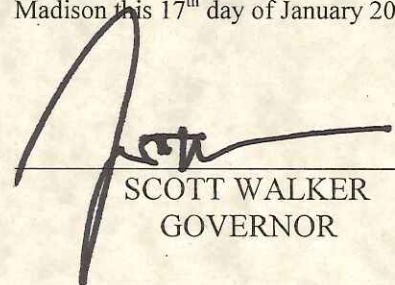 Madison this 17th day of January 20
SCOTT WALKER
GOVERNOR